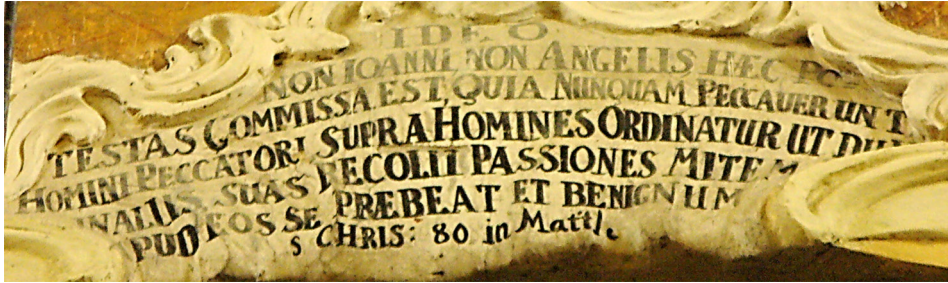 IDEO
NON IOANNI NON ANGELIS HÆC PO
TESTAS COMMISSA EST, QUIA NUNQUAM PECCAVERUNT.
HOMINI PECCATORI SUPRA HOMINES ORDINATUR UT DUM
SUAS RECOLIT PASSIONES MITEM
APUD EOS SE PRÆBEAT ET BENIGNUM
S CHRIS: 80 in Matth.